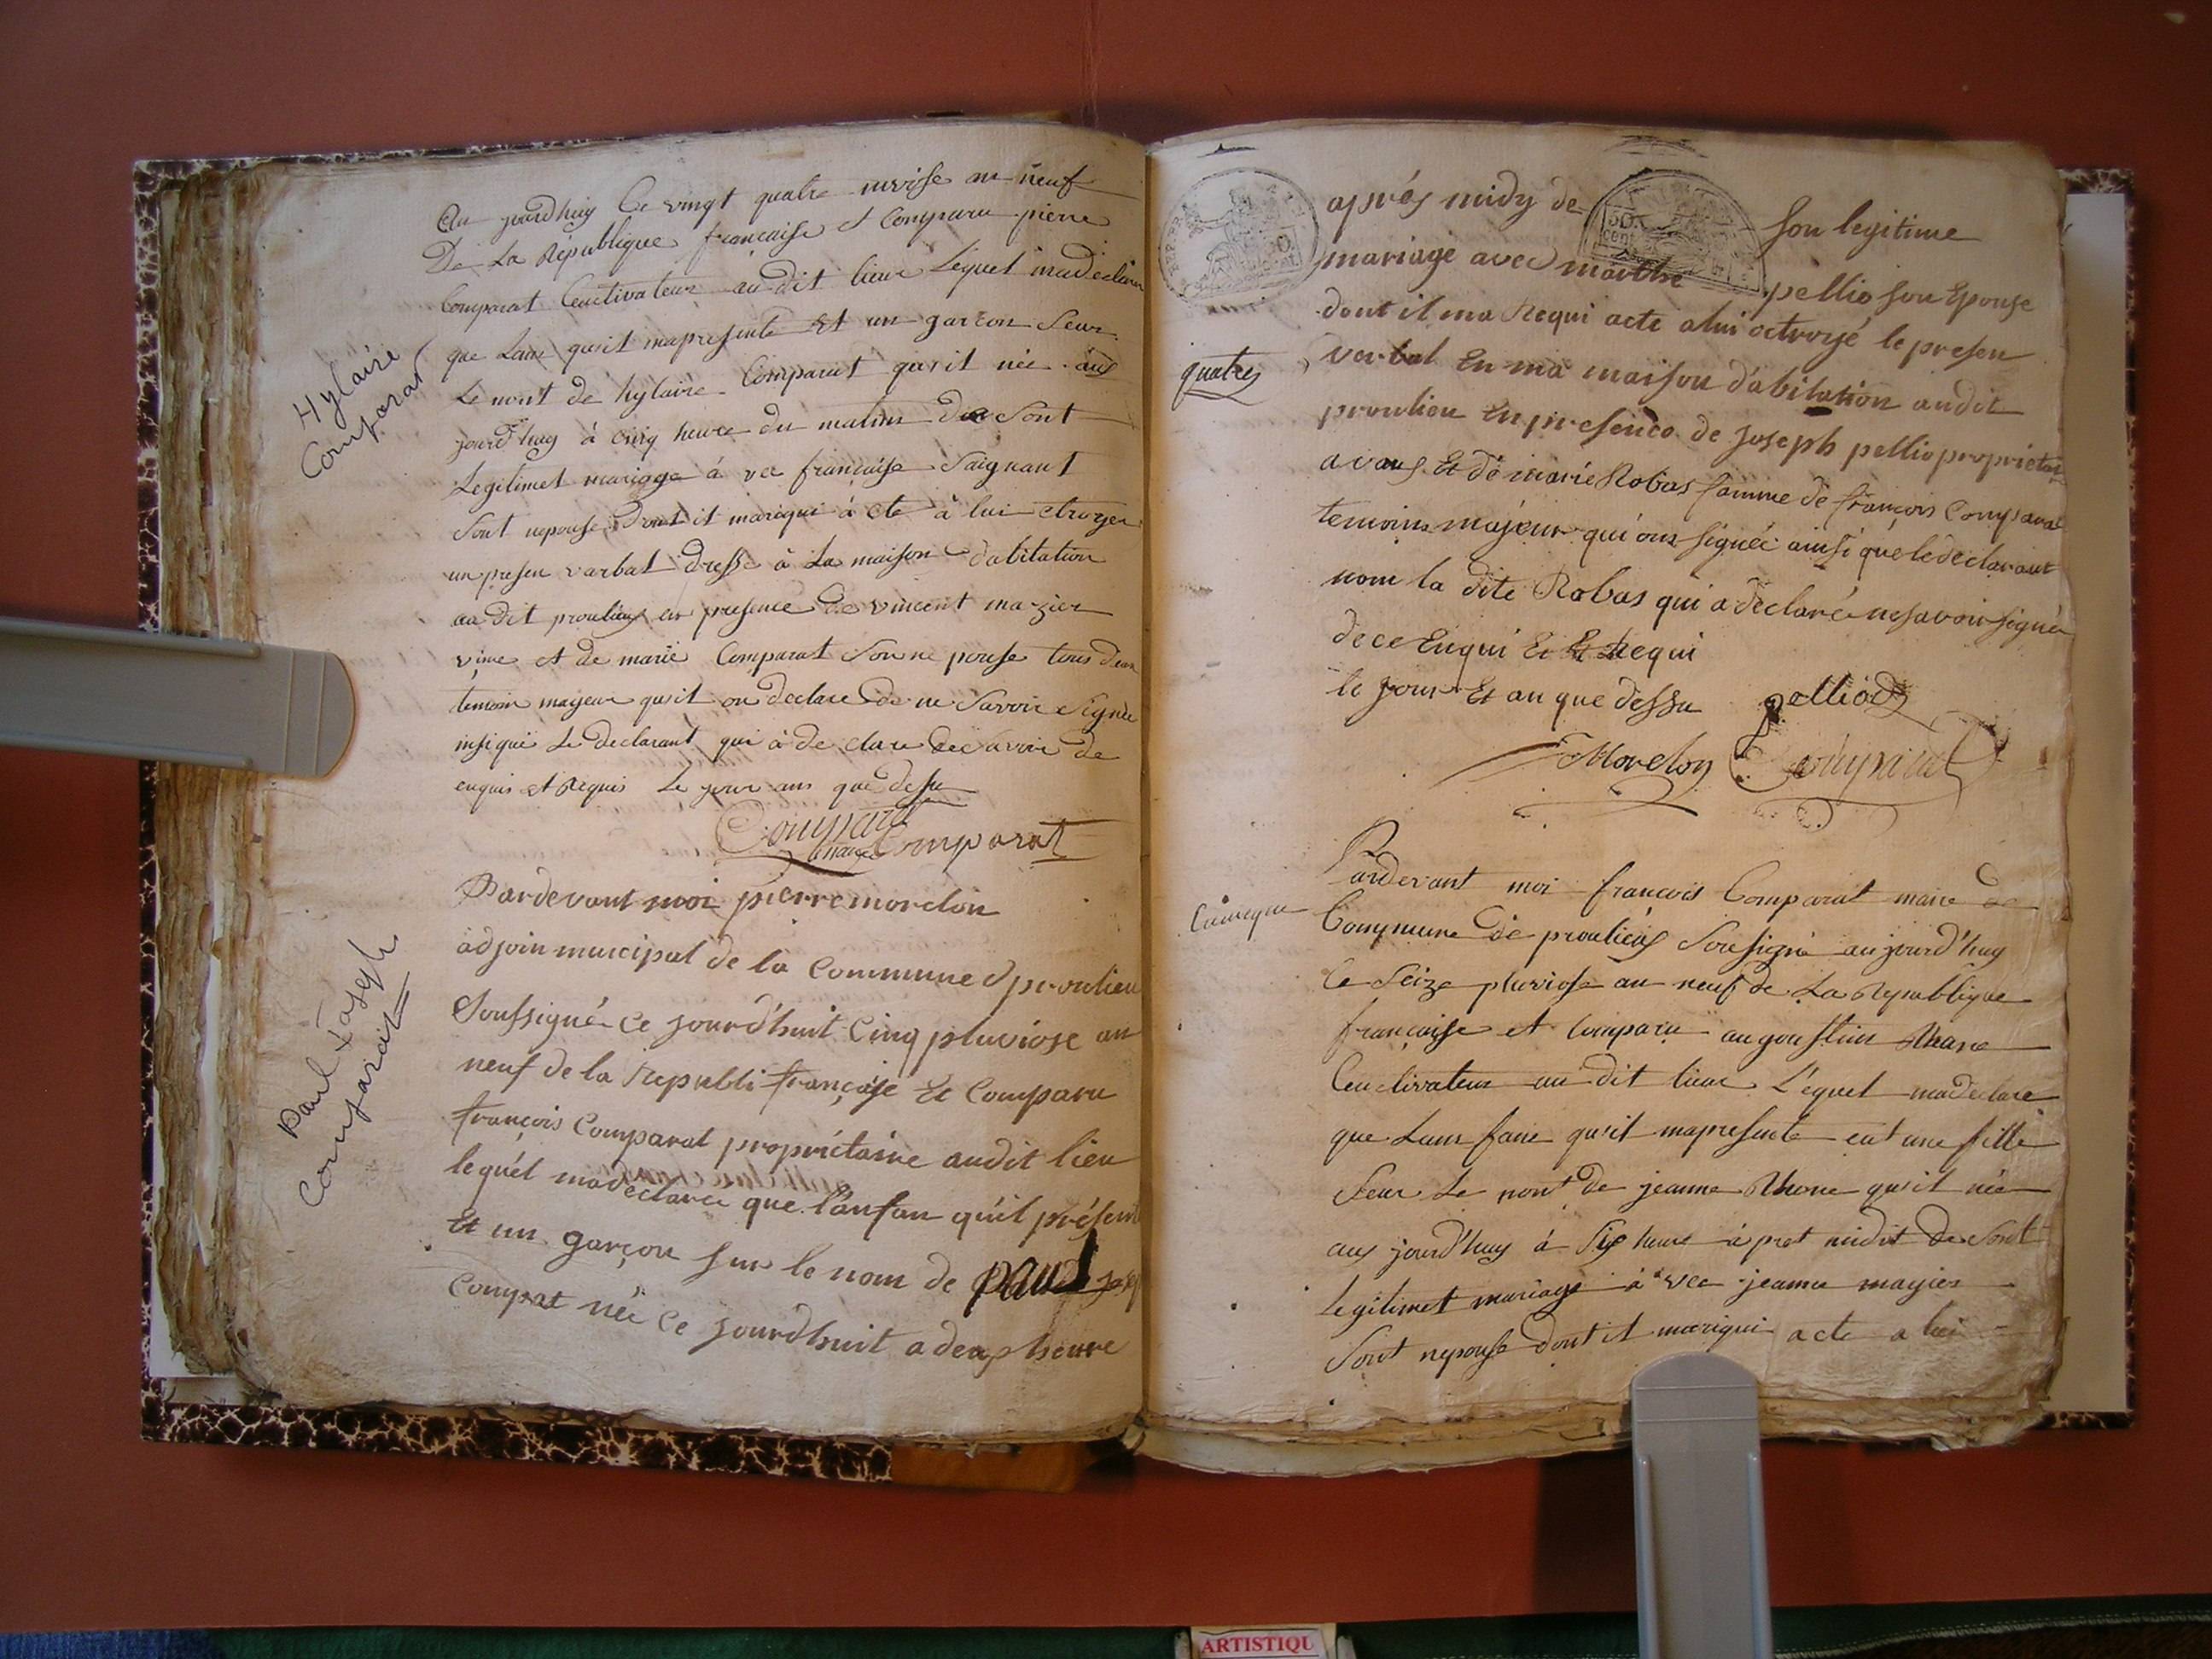 Hylaire
Comparat
Au jourdhuy Ce vingt quatre nivise an neuf
De La Republique francaise et Comparu pierre
Comparat Ceuctivateur au dit lieux Lequel madeclare
que Lanf qu'it mapresente Et un garcon Seur
Le nont de hylaire Comparat qu'it née aux
jourd'huy à cinq heure du matins de Sont
Legitimet mariage à vec françaïse Saignant
Sont nepouse Dont it mariqui à cte à lui ctroyer
un presen varbal Dressé à La maison d'abitation
au Dit proulieux en presence De vincent mazier
vime et de marie Comparat Son ne pouse tous deux
temoin mageur qu'it on declare de ne Savoir Signée
insi que Le declarant qui à de clare de Savoir de
enquis et Requis Le jour ans que dessu
Comparat
maire Comparat
Paul Joseph
Comparat
Pardevant moi pierre morelon
adjoin municipal de la Commune d proulieu
Soussigné Ce jourd'huit Cinq pluviose an
neuf de la Republi françaije Et Comparu
françois Comparat propriétaire audit lieu
lequ'el madeclarer que l'anfan qu'il présent
Et un garçon sur le nom de paul Josep
Comprat née Ce jourdhuit a deux heure
après midy de son legitime
50
cent
mariage avec marthe pellio son Epouse
dont il ma Requi acte a lui octroyé le presen
quatres
verbal En ma maison d'abitation audit
proulieu En presence de joseph pellio proprietair
a vaux Et de marie Robas famme de françois Comparat
temoins majeur qui ons signée ainsi que le declarant
nom la dite Robas qui a déclaré ne savoir signée
de ce Enqui Et Requi
le jour Et an que dessu pelliod
Morelon Comparat
Cuincque
Pardevant moi francois Comparat maire de
Commune de proulieux Sousigné aujourd'huy
Ce Seize pluviose an neuf de La Republique
françaïse et Comparu augoustin Rhane
Ceuctivateur au dit lieux L'équel madeclare
que Lanfane qu'it mapresente eut une fille
Seur Le nont de jeanne Rhone qu'it née
aux jourd'huy à Six heure à pret midit de Sont
Legitimet mariage à vec jeanne magier
Sont nepouse dont it mariqui acte a lui
ARTISTIQU